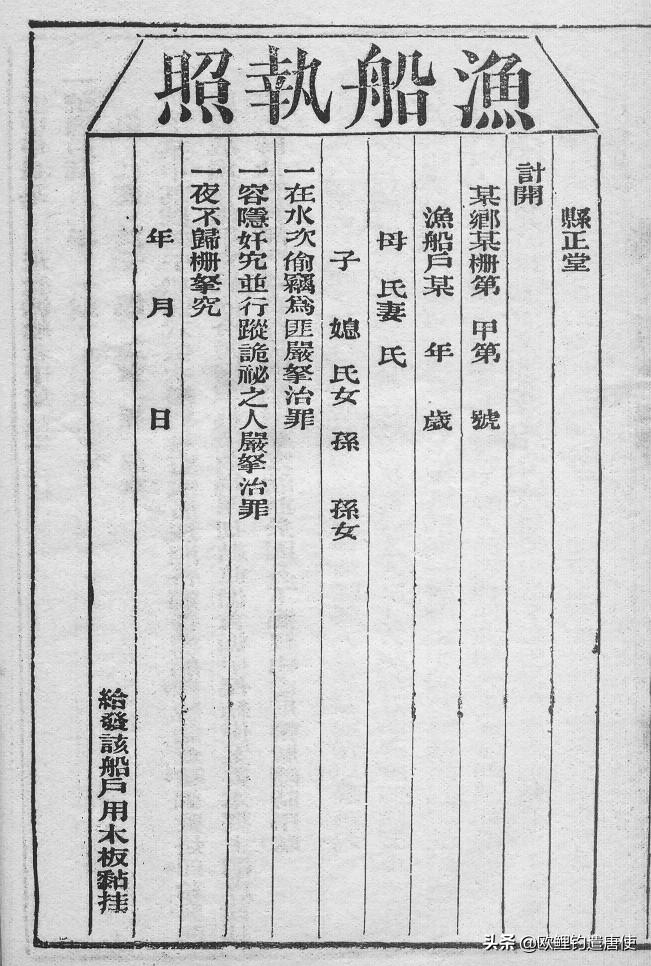 漁船執照
縣正堂
計開
某鄉某柵第 甲第 號
漁船戶某 年 歲
母 氏妻 氏
子 媳 氏女 孫 孫女
一在水次偷竊為匪嚴拏治罪
一容隱奸宄並行蹤詭祕之人嚴拏治罪
一夜不歸柵拏究
年 月 日
給發該船戶用木板黏挂
头条 @欧鲤钓遣唐使